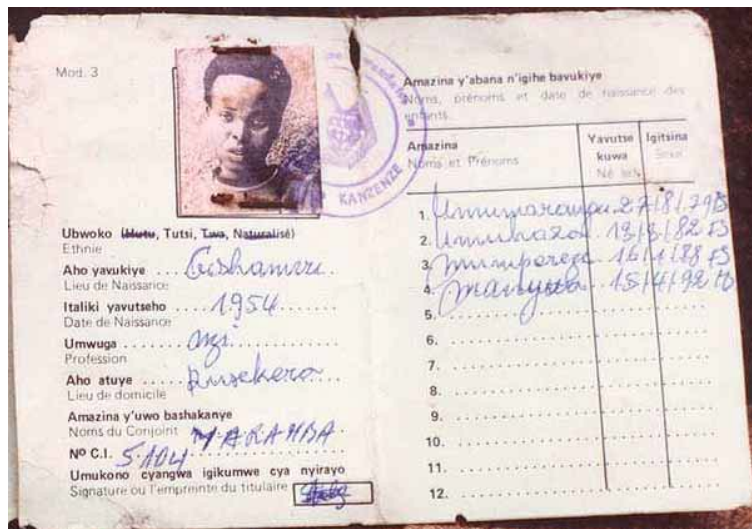 Mod. 3
KANZENZE
Ubwoko (Hutu, Tutsi, Twa, Naturalisé)
Ethnie
Aho yavukiye .... Gishamvu
Lieu de Naissance
Italiki yavutseho ..... 1954
Date de Naissance
Umwuga ........
Profession
Aho atuye ..... Rusekera
Lieu de domicile
Amazina y'uwo bashakanye
Noms du Conjoint
Nº C.I. 5104
Umukono cyangwa igikumwe cya nyirayo
Signature ou l'empreinte du titulaire
Amazina y'abana n'igihe bavukiye
Noms, prénoms et date de naissance des
enfants
Amazina
Noms et Prénoms
Yavutse
kuwa
Né le
Igitsina
Sexe
1. 27/8/79
2. Umuhaza 13/3/82 F
3. 16/1/88 F
4. 15/4/92
5.
6.
7.
8.
9.
10.
11.
12.